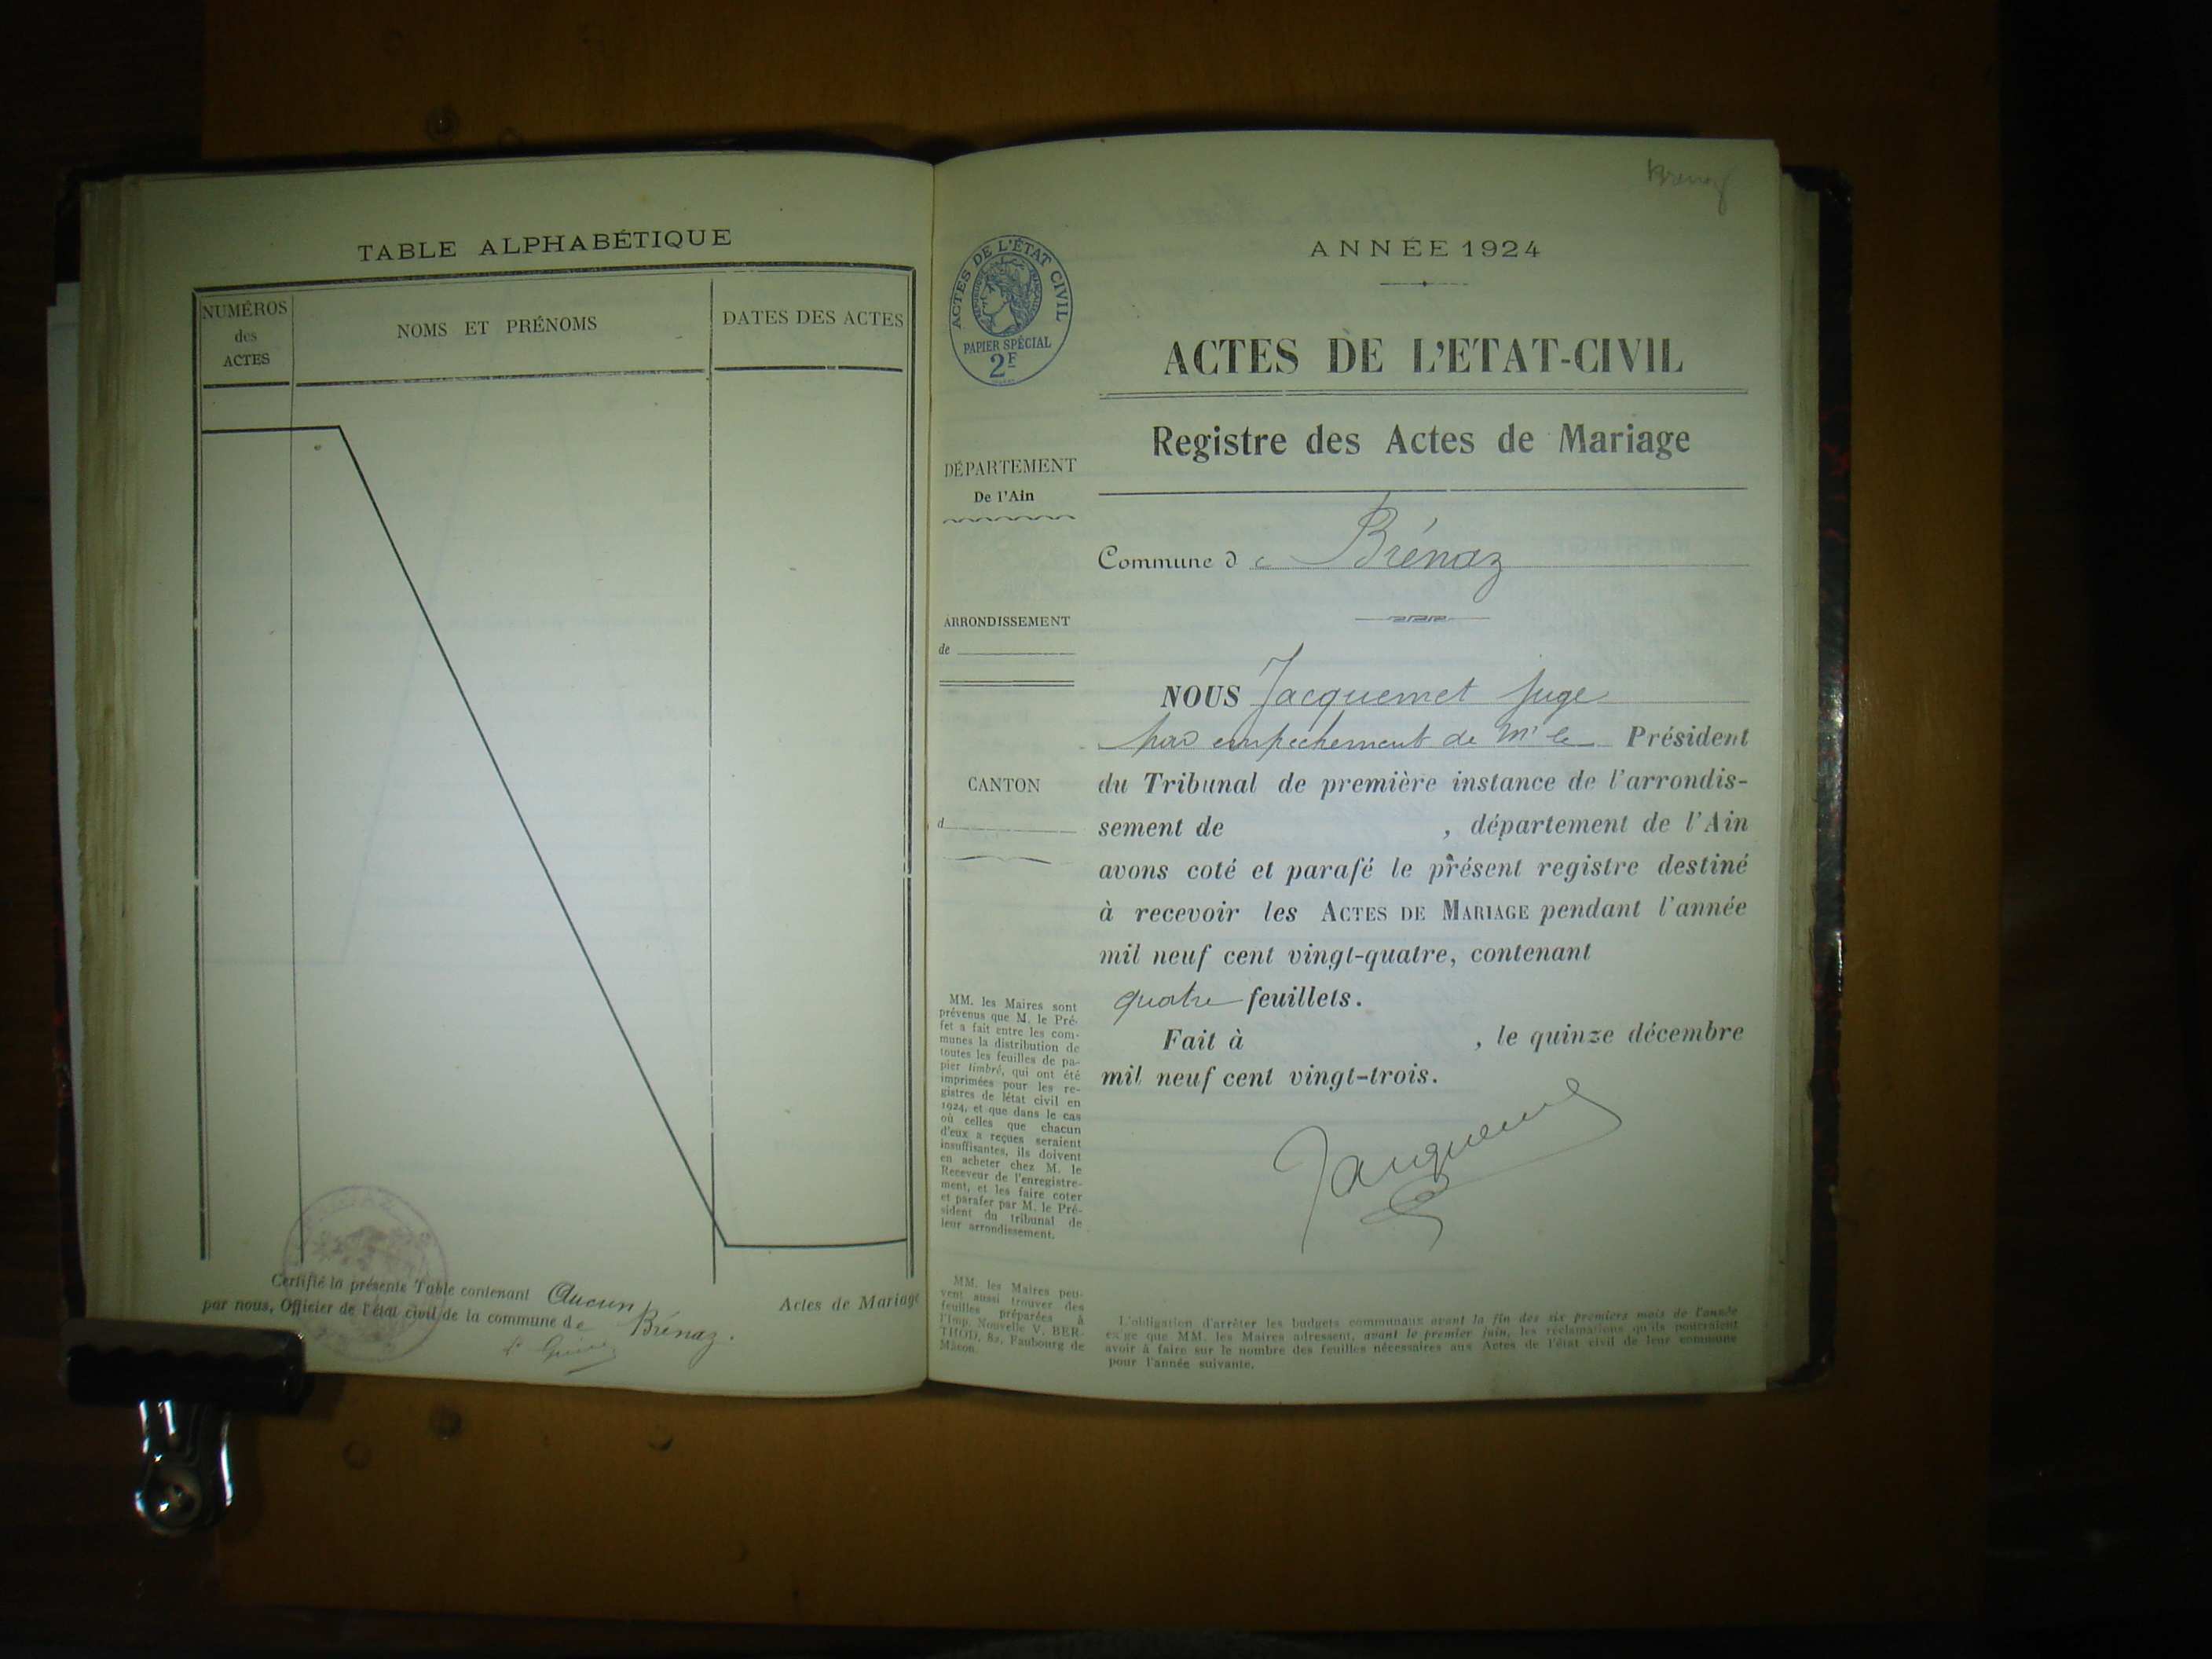 TABLE ALPHABÉTIQUE
NUMÉROS
des
ACTES
NOMS ET PRÉNOMS
DATES DES ACTES
Certifié la présente Table contenant Aucun Actes de Mariage
par nous, Officier de l'état civil de la commune de Brénaz.
Brénaz
ACTES DE L'ÉTAT CIVIL
RÉPUBLIQUE FRANÇAISE
PAPIER SPÉCIAL
2F
DÉPARTEMENT
De l'Ain
ARRONDISSEMENT
de
CANTON
d
MM. les Maires sont
prévenus que M. le Pré-
fet a fait entre les com-
munes la distribution de
toutes les feuilles de pa-
pier timbré, qui ont été
imprimées pour les re-
gistres de létat civil en
1924, et que dans le cas
où celles que chacun
d'eux a reçues seraient
insuffisantes, ils doivent
en acheter chez M. le
Receveur de l'enregistre-
ment, et les faire coter
et parafer par M. le Pré-
sident du tribunal de
leur arrondissement.
MM. les Maires peu-
vent aussi trouver des
feuilles préparées à
l'Imp. Nouvelle V. BER-
THOD, 82, Faubourg de
Mâcon.
ANNÉE 1924
ACTES DE L'ETAT-CIVIL
Registre des Actes de Mariage
Commune de Brénaz
NOUS Jacquemet Juge
par empêchement de Mr le Président
du Tribunal de première instance de l'arrondis-
sement de , département de l'Ain
avons coté et parafé le présent registre destiné
à recevoir les ACTES DE MARIAGE pendant l'année
mil neuf cent vingt-quatre, contenant
quatre feuillets.
Fait à , le quinze décembre
mil neuf cent vingt-trois.
Jacquemet
L'obligation d'arrêter les budgets communaux avant la fin des six premiers mois de l'année
exige que MM. les Maires adressent, avant le premier juin, les réclamations qu'ils pourraient
avoir à faire sur le nombre des feuilles nécessaires aux Actes de l'état civil de leur commune
pour l'année suivante.